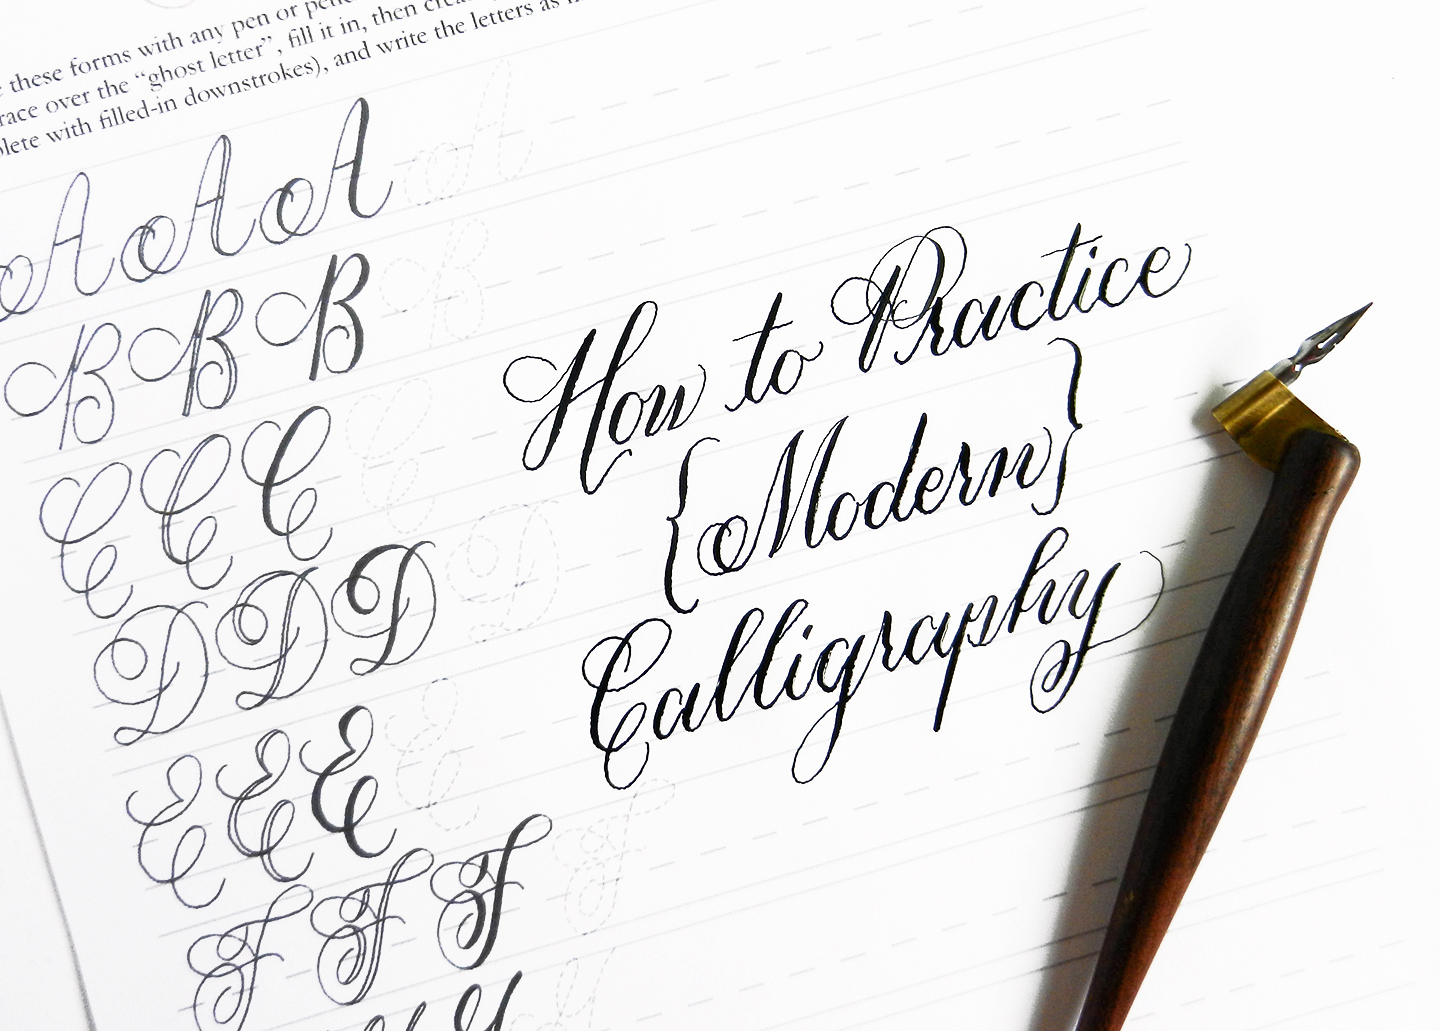 these forms with any pen or
race over the "ghost letter", fill it in, then
plete with filled-in downstrokes), and write the letters as
A A A A
B B B B
C C C C
D D D D
E E E E
F F F F
How to Practice
{Modern}
Calligraphy